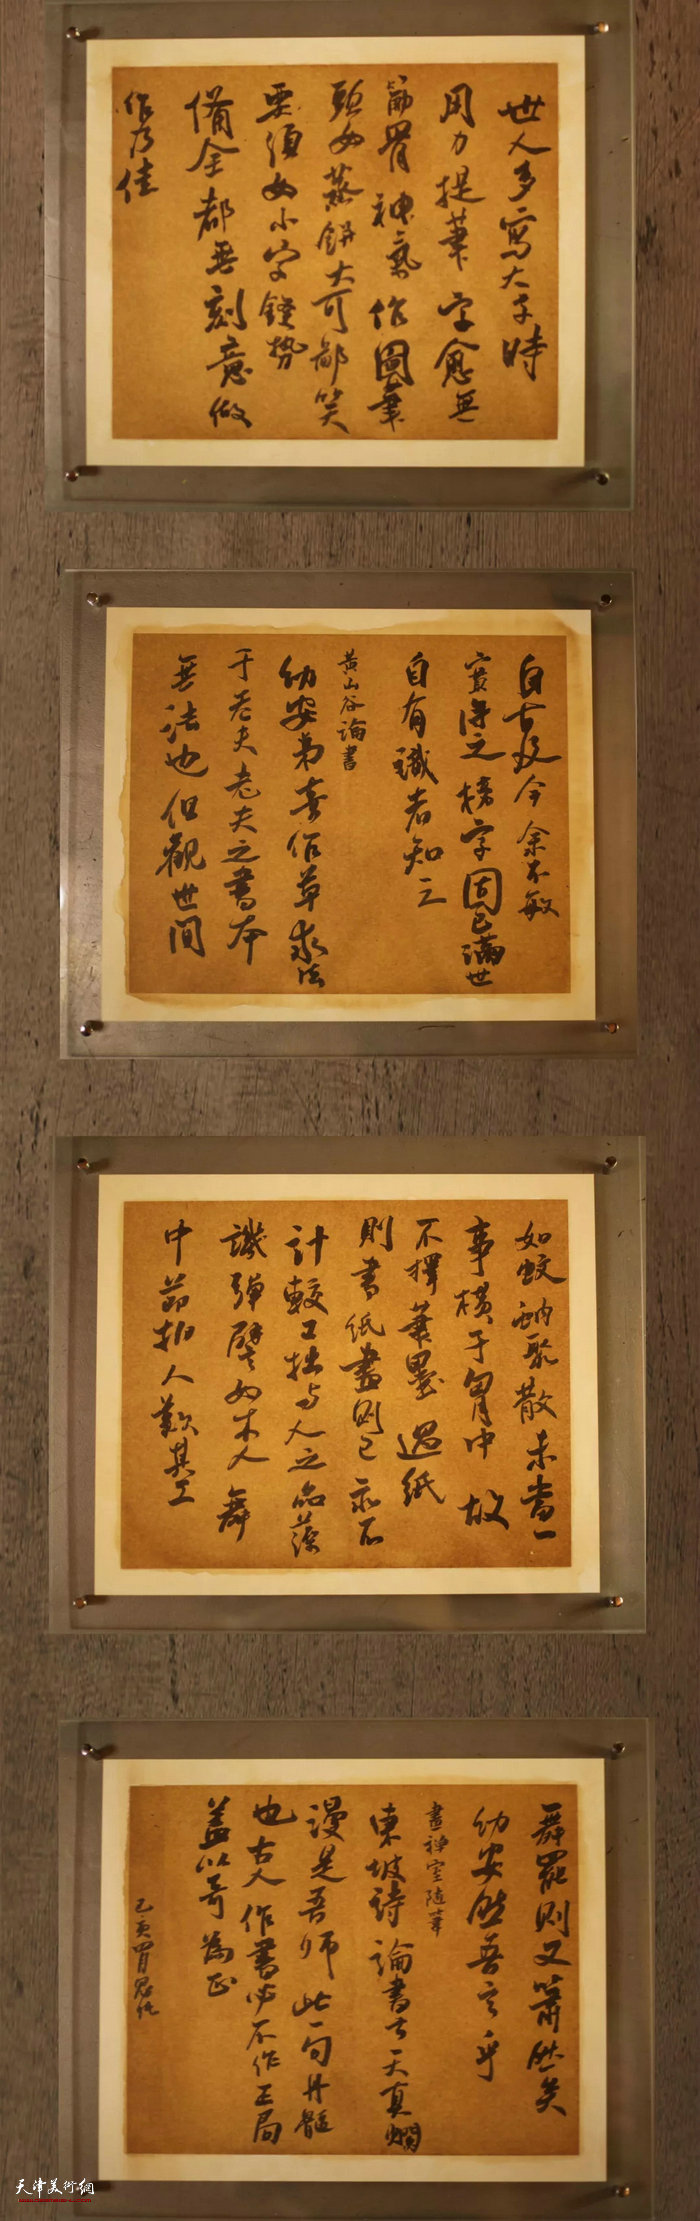 世人多寫大字時
用力提筆字愈無
筋骨神氣作圓筆
頭如蒸餅大可鄙笑
要須如小字鋒勢
備全都無刻意做
作乃佳
自古及今余不敏
實得之榜字固已滿世
自有識者知之
黃山谷論書
幼安弟喜作草求法
于老夫老夫之書本
無法也但觀世間
如蚊蚋聚散未嘗一
事橫于胸中故
不擇筆墨遇紙
則書紙盡則已亦不
計較工拙与人之品藻
譏彈譬如木人舞
中節拍人歎其工
舞罷則又蕭然矣
幼安然吾言乎
畫禪室隨筆
東坡詩論書云天真爛
漫是吾師此一句丹髓
也古人作書必不作正局
蓋以奇為正
己亥
天津美術網